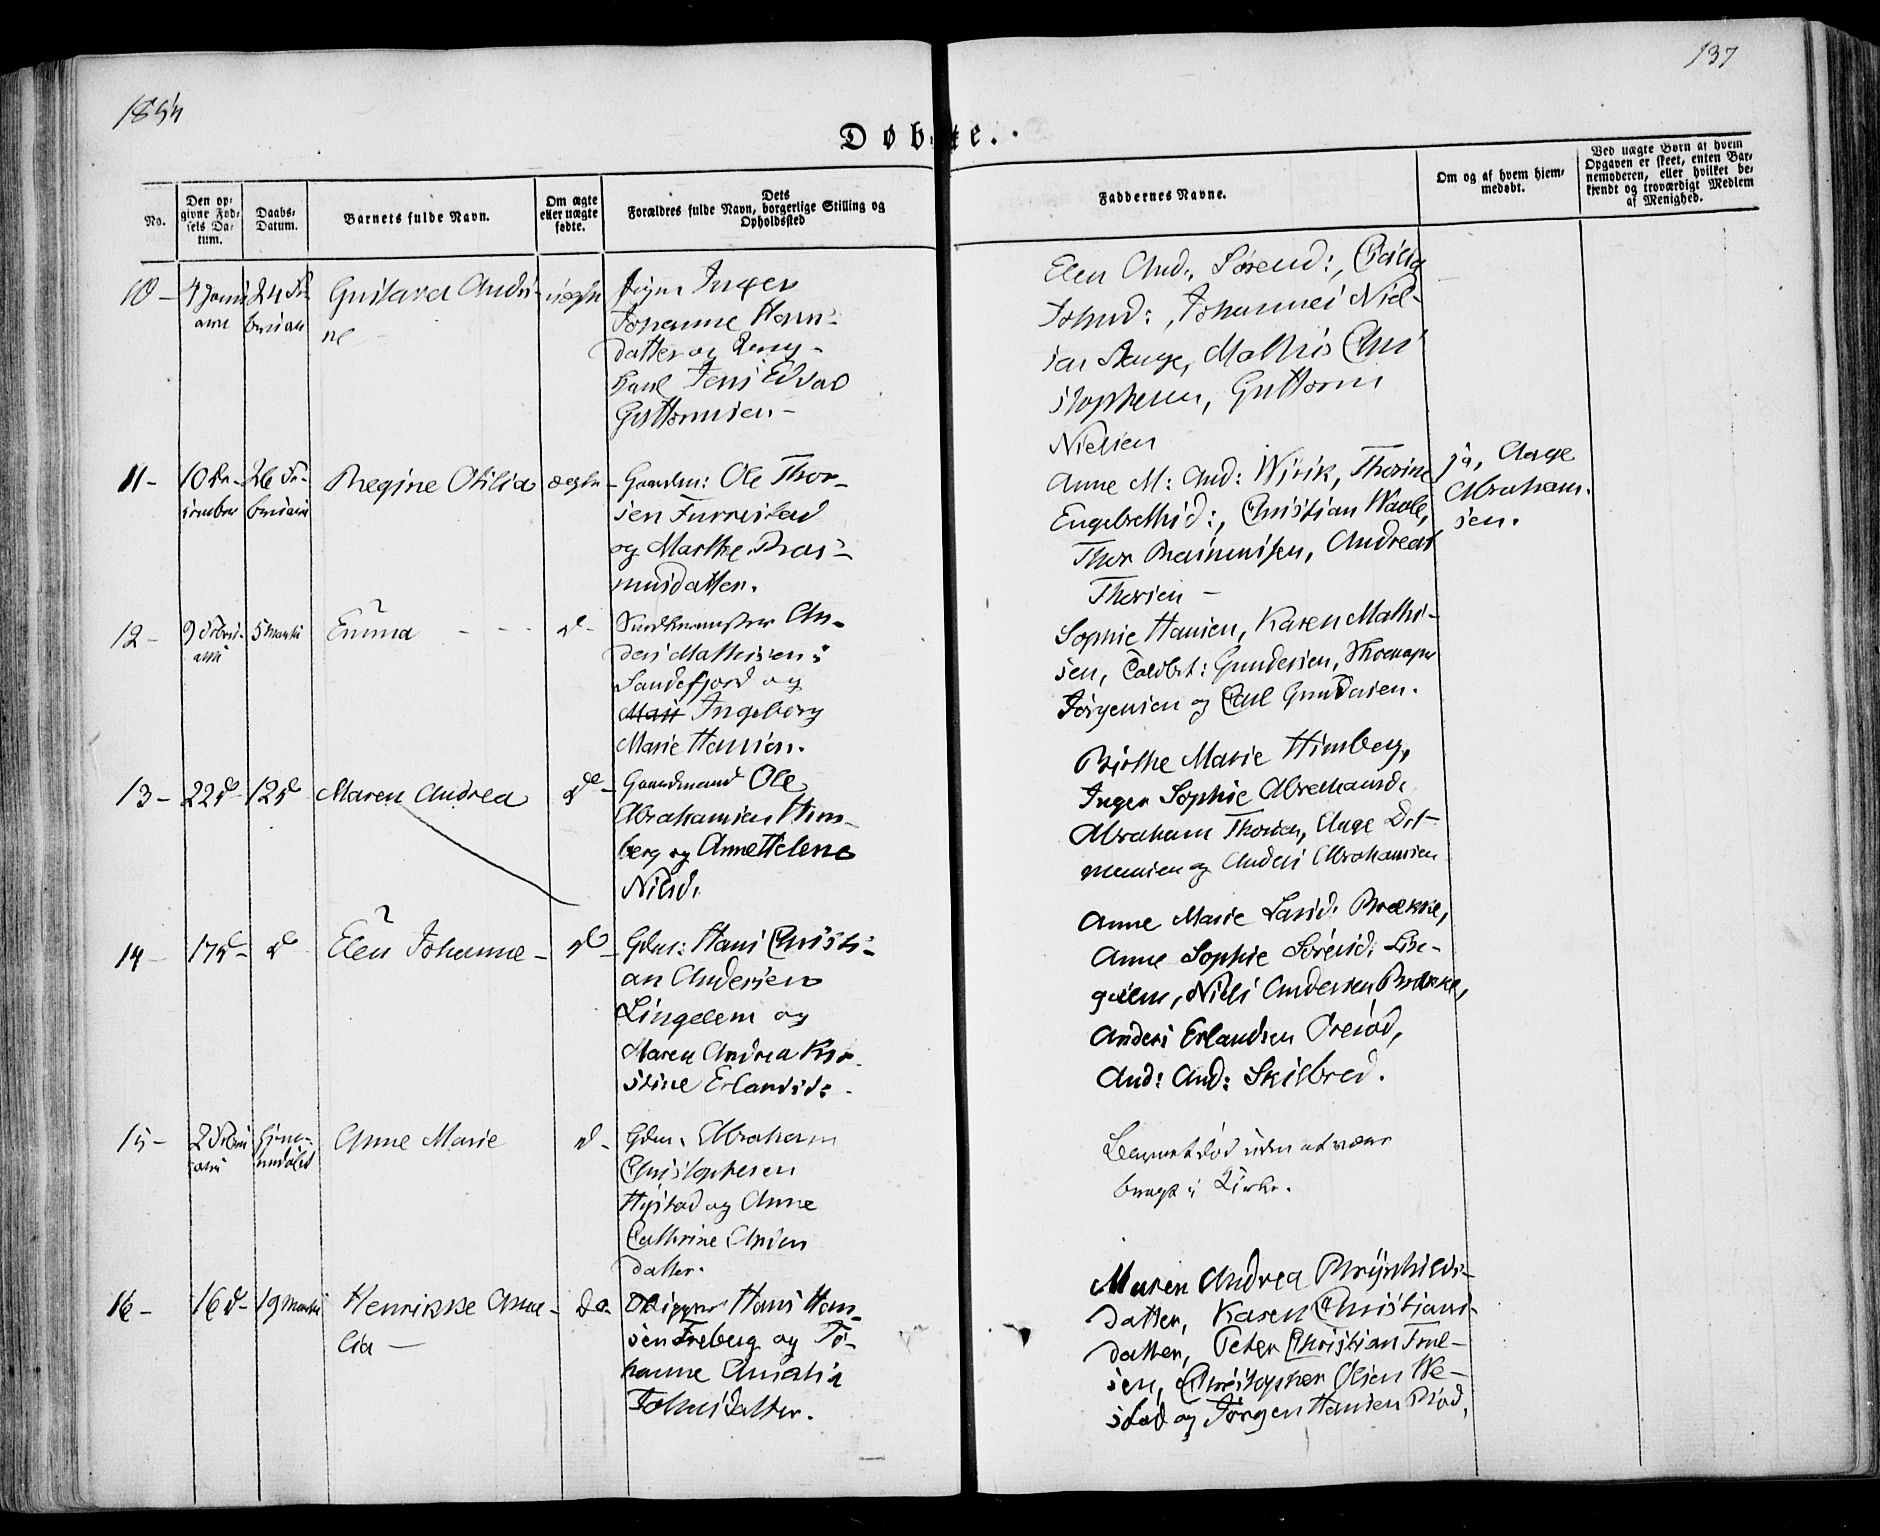 1854
137
Døbte.
No.
Den op-
givne Fød-
sels Da-
tum.
Daabs-
Datum.
Barnets fulde Navn.
Om ægte
eller uægte
fødte.
Dets
Forældres fulde Navn, borgerlige Stilling og
Opholdssted
Faddernes Navne.
Om og af hvem hjem-
medøbt.
Ved uægte Børn af hvem
Opgaven er skeet, enten Bar-
nemoderen, eller hvilket be-
kjendt og troværdigt Medlem
af Menighed.
10 - 4 Janu 24 Fe- Gustava Andri- uægte Pigen Inger
arii bruarii ne - Johanne Hans-
datter og Ung-
karl Jens Edvard
Guttormsen -
Elen And:, Sørend:, Cecilia
Johnd:, Johannes Niel-
sen Stange, Mathis Chri
stophersen, Guttorm
Nielsen
11 - 10 De- 26 Fe- Regine Otilia ægte - Gaardm: Ole Thor-
cember bruarii sen Furustad
og Marthe Ras-
musdatter.
Anne M: And: Wirik, Thorine
Engebrethsd:, Christian Waale,
Thor Rasmussen, Andreas
Thorsen -
ja, Aage
Abraham-
sen.
12 - 9 Febru- 5 Martii Emma - - - d - An-
arii ders Mathisen i
Sandefjord og
Mari Ingeborg
Marie Hansen.
Sophie Hansen, Karen Mathi-
sen, Gundersen,
Jörgensen og Carl Gundersen.
13 - 22 d - 12 d Maren Andrea do - Gaardmand Ole
Abrahamsen Him-
berg og Anne Helene
Nilsd.
Birthe Marie Himberg,
Inger Sophie Abrahamsd.
Abraham Thorsen, Aage Det-
mensen og Anders Abrahamsen
14 - 17 d - d Elen Johanne - do - Gdm: Hans Christi-
an Andersen
Lingelem og
Maren Andrea Kir-
stine Erlandsd: -
Anne Marie Larsd. Brække,
Anne Sophie Sörensd: Lin-
gelem, Niels Andersen Brække,
Anders Erlandsen Örsiød,
And: And: Skilbred.
15 - 2 Febru Hjem- Anne Marie d - Gdm. Abraham
arii medöbt Christophersen
Hystad og Anne
Cathrine Anders
datter.
Barnet död uden at være
bragt i Kirke.
16 - 16 d - 19 Martii Henrikke Ama- do - Skipper Hans Han-
lia - sen Freberg og Jo-
hanne Amalia
Johnsdatter.
Maren Andrea Brynhilds-
datter, Karen Christians-
datter, Peter Christian Fre-
sen, Christopher Olsen We-
stad og Jörgen Hansen Röd,